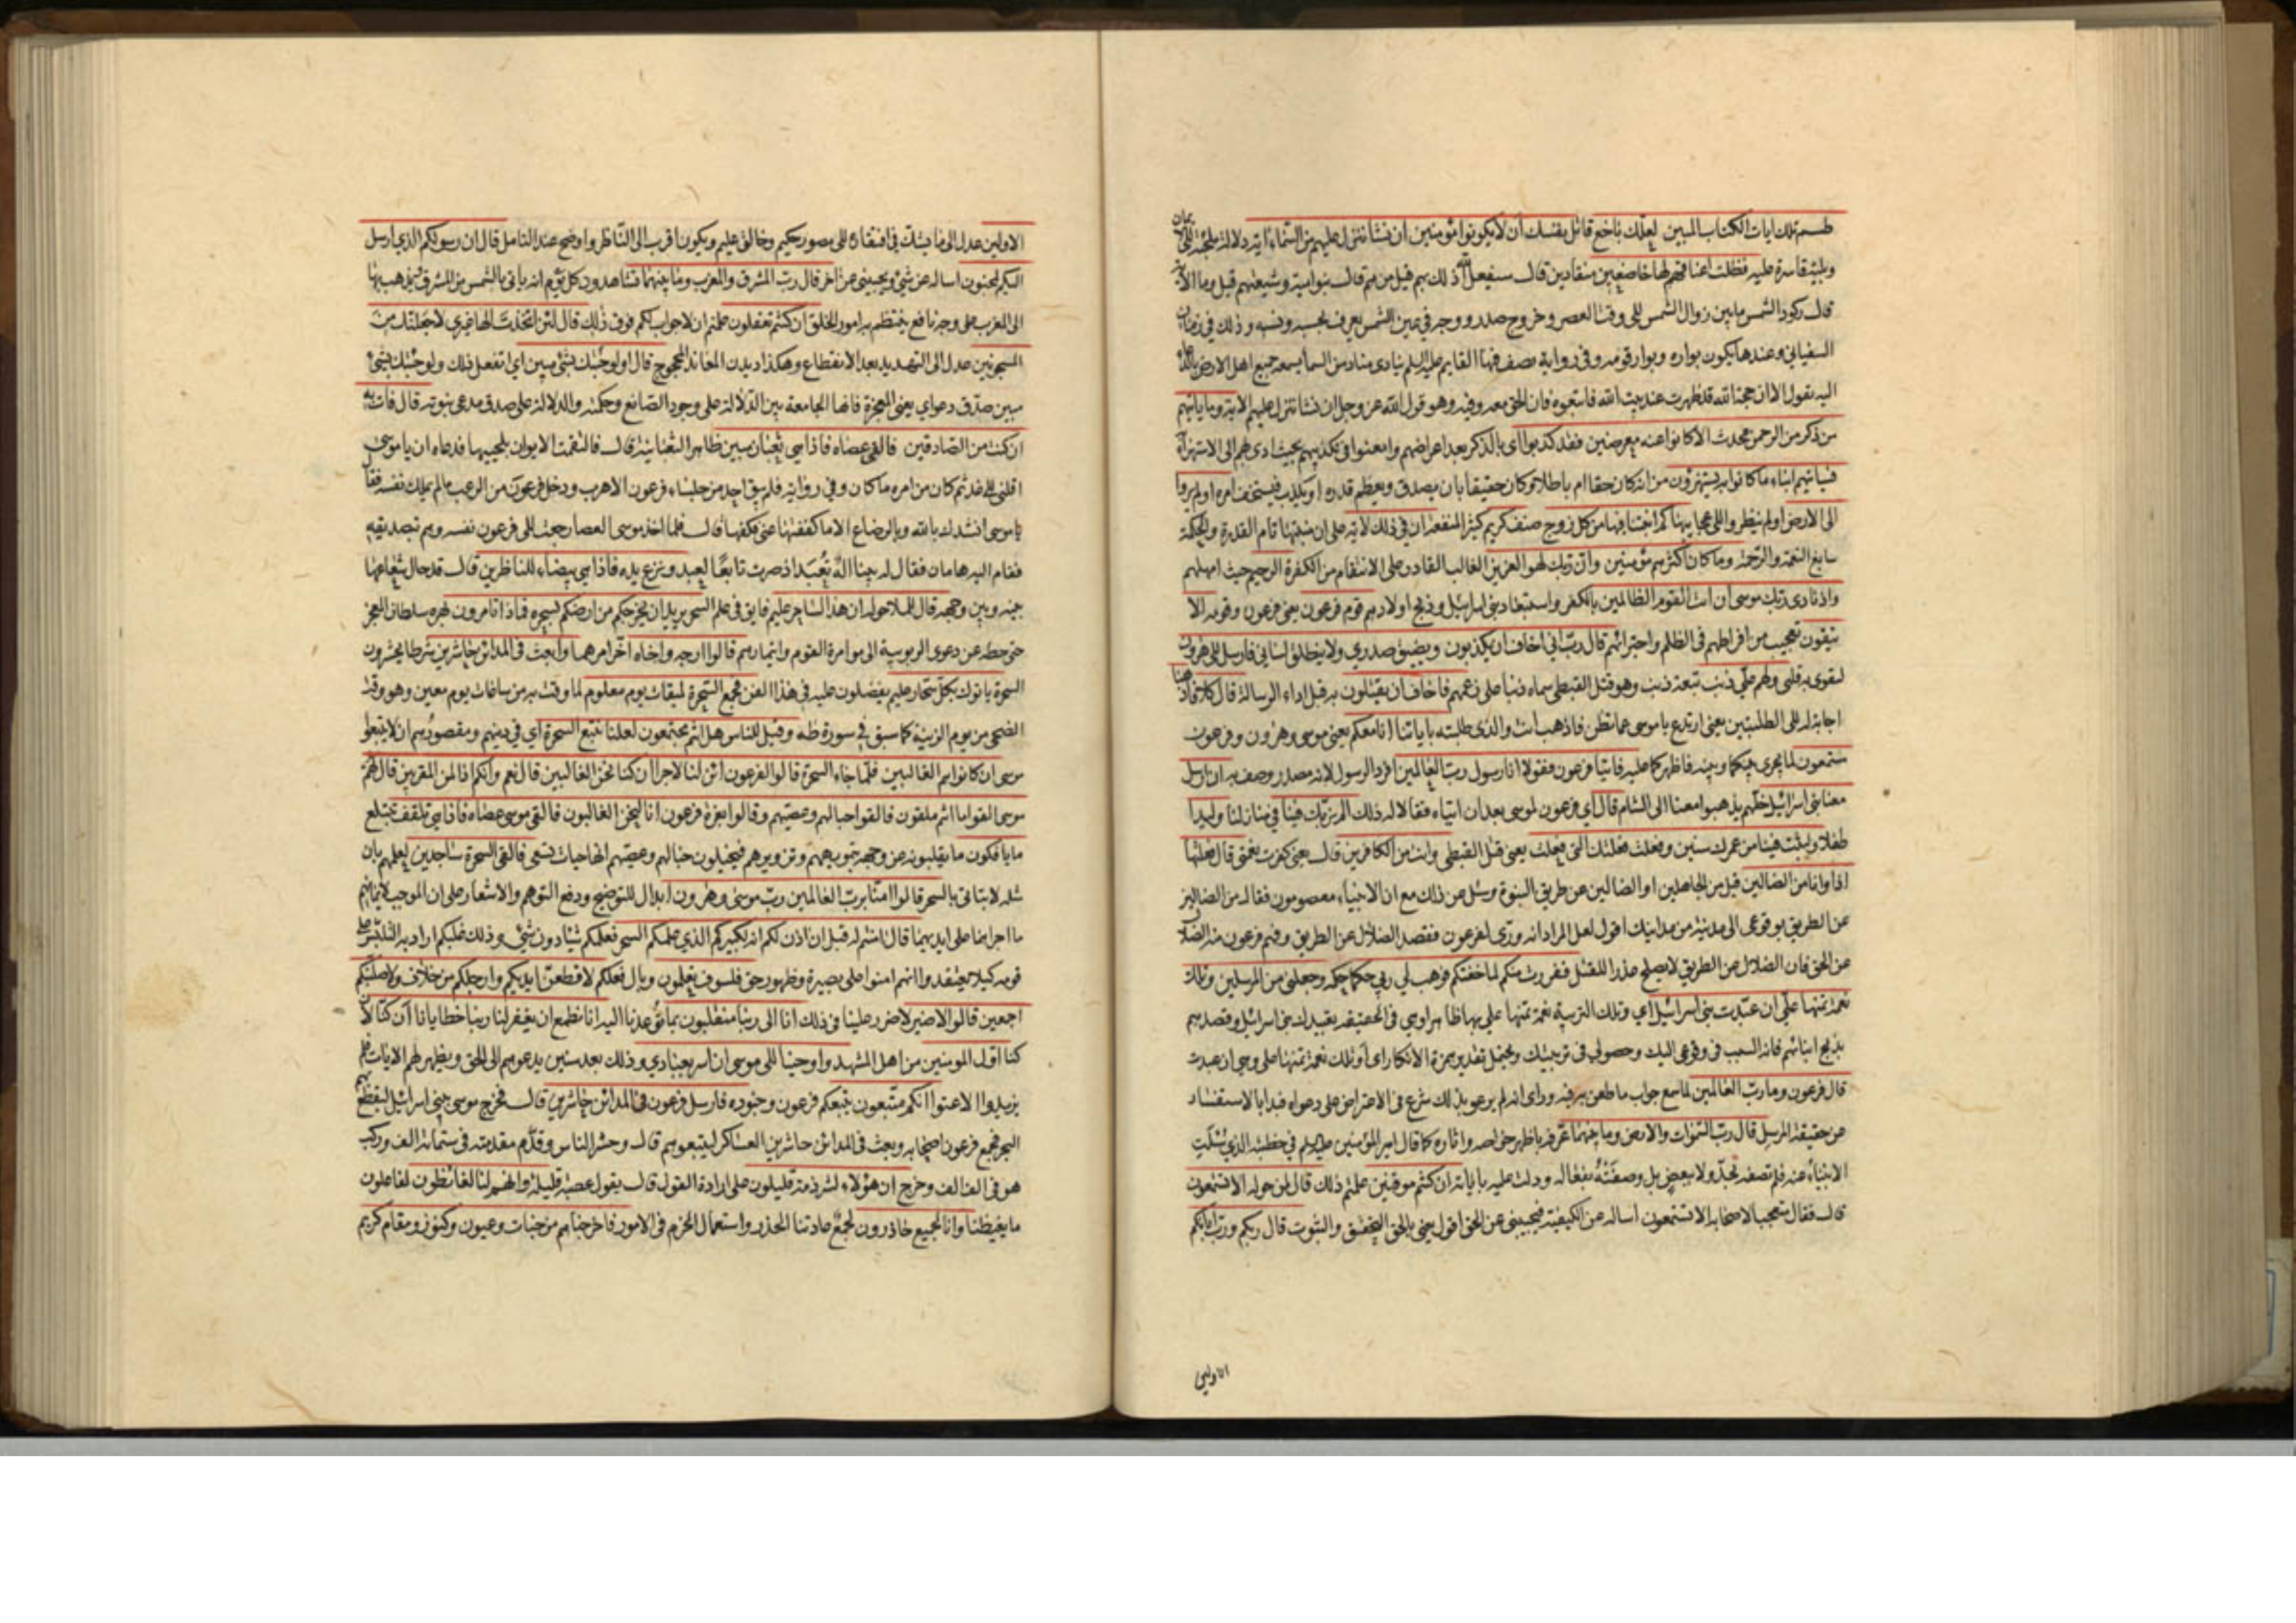 طسم تلك ايات الكتاب المبين لعلك باخع قاتل نفسك أن لا يكونوا مؤمنين ان نشأ ننزل عليهم من السماء اية دلالة ملجئة الى
يمان
وبلية قاسرة عليه فظلت اعناقهم لها خاضعين منقادين قال سيفعل الله ذلك بهم قيل من هم قال بنو امية وشيعتهم قيل وما الاية
قال ركود الشمس مابين زوال الشمس الى وقت العصر وخروج صدر ووجه في عين الشمس يعرف بحسبه ونسبه وذلك في زمان
السفياني وعندها يكون بواره وبوار قومه وفي رواية يصف فيها القايم عليه السلم ينادى مناد من السما يسمعه جميع اهل الارض بالدعا
اليه يقول الا ان حجة الله قد ظهرت عند بيت الله فاتبعوه فان الحق معه وفيه وهو قول الله عز وجل ان نشا ننزل عليهم الاية وما ياتيهم
من ذكر من الرحمن محدث الا كانوا عنه معرضين فقد كذبوا اى بالذكر بعد اعراضهم وامعنوا في تكذيبهم بحيث ادى بهم الى الاستهزآء
فسياتيهم انباء ما كانوا به يستهزؤن من انه كان حقا ام باطلا وكان حقيقا بان يصدق ويعظم قدره او يكذب فيستخف امره اولم يروا
الى الارض اولم ينظروا الى عجايبها كم انبتنا فيها من كل زوج صنف كريم كثير المنفعة ان في ذلك لاية على ان منبتها تام القدرة والحكمة
سابغ النعمة والرحمة وما كان اكثرهم مؤمنين وان ربك لهو العزيز الغالب القادر على الانتقام من الكفرة الرحيم حيث امهلهم
واذ نادى ربك موسى أن ائت القوم الظالمين بالكفر واستعباد بنى اسرائيل وذبح اولادهم قوم فرعون يعنى فرعون وقومه الا
يتقون تعجيب من افراطهم في الظلم واجترائهم قال رب انى اخاف ان يكذبون ويضيق صدري ولا ينطلق لساني فارسل الى هرون
ليقوى به قلبى ولهم علي ذنب تبعة ذنب وهو قتل القبطى سماه ذنبا على زعمهم فاخاف ان يقتلون به قبل اداء الرسالة قال كلا فاذهبا
اجابة له الى الطلبتين يعنى ارتدع يا موسى عما تظن فاذهب انت والذى طلبته باياتنا انا معكم يعنى موسى وهرون وفرعون
مستمعون لما يجرى بينكما وبينه فاظهركما عليه فاتيا فرعون فقولا انا رسول رب العالمين افرد الرسول لانه مصدر وصف به ان ارسل
معنا بنى اسرائيل خلهم يذهبوا معنا الى الشام قال اي فرعون لموسى بعد ان اتياه فقالا له ذلك الم نربك فينا في منازلنا وليدا
طفلا ولبثت فينا من عمرك سنين وفعلت فعلتك التى فعلت يعنى قتل القبطى وانت من الكافرين قال يعنى كفرت بنعمتى قال فعلتها
اذا وانا من الضالين قيل من الجاهلين او الضالين عن طريق النبوة وسئل عن ذلك مع ان الانبياء معصومون فقال من الضالين
عن الطريق بوقوعى الى مدينة من مداينك اقول لعل المراد انه ورّى لفرعون فقصد الضلال عن الطريق وفهم فرعون منه الضلال
عن الحق فان الضلال عن الطريق لا يصلح عذرا للقتل ففررت منكم لما خفتكم فوهب لي ربي حكما حكمة وجعلنى من المرسلين وتلك
نعمة تمنها علي ان عبّدت بنى اسرائيل اي وتلك التربية نعمة تمنها علي بها ظاهرا وهي في الحقيقة تعبيدك بنى اسرائيل وقصدهم
بذبح ابنائهم فانه السبب في وقوعى اليك وحصولي في تربيتك ويحتمل تقدير همزة الانكار اى أوتلك نعمة تمنها على وهي ان عبدت
قال فرعون وما رب العالمين لما سمع جواب ما طعن به فيه وراى انه لم يرعو بذلك شرع في الاعتراض على دعواه فبدا بالاستفسار
عن حقيقة المرسل قال رب السموات والارض وما بينهما عرفه باظهر خواصه واثاره كما قال امير المؤمنين عليه السلم في خطبته الذي سئلت
الانبياء عنه فلم تصفه بحدّ ولا ببعض بل وصفته بفعاله ودلت عليه باياته ان كنتم موقنين علمتم ذلك قال لمن حوله الا تستمعون
قال فقال متعجبا لاصحابه الا تستمعون اساله عن الكيفية فيجيبنى عن الحق اقول يعنى بالحق التحقق والثبوت قال ربكم ورب ابائكم
الاولين
الاولين عدل الى ما لا يشك في افتقاره الى مصور حكيم وخالق عليم ويكون اقرب الى الناظر واوضح عند التامل قال ان رسولكم الذي ارسل
اليكم لمجنون اساله عن شئ ويجيبنى عن اخر قال رب المشرق والمغرب وما بينهما تشاهدون كل يوم انه ياتى بالشمس من المشرق ويذهب بها
الى المغرب على وجه نافع ينتظم به امور الخلق ان كنتم تعقلون علمتم ان لا جواب لكم فوق ذلك قال لئن اتخذت الها غيرى لاجعلنك من
المسجونين عدل الى التهديد بعد الانقطاع وهكذا ديدن المعاند المحجوج قال اولو جئتك بشئ مبين اي اتفعل ذلك ولو جئتك بشئ
مبين صدق دعواي يعنى المعجزة فانها الجامعة بين الدلالة على وجود الصانع وحكمته والدلالة على صدق مدعى نبوته قال فات به
ان كنت من الصادقين فالقى عصاه فاذا هي ثعبان مبين ظاهر الثعبانية قال فالتقمت الايوان بلحييها فدعاه ان يا موسى
اقلنى الى غد ثم كان من امره ما كان وفي رواية فلم يبق احد من جلساء فرعون الا هرب ودخل فرعون من الرعب ما لم يملك نفسه فقال
يا موسى انشدك بالله وبالرضاع الا ما كففتها عنى فكفها قال فلما اخذ موسى العصا رجعت الى فرعون نفسه وهم بتصديقه
فقام اليه هامان فقال له بينا اله تُعبد اذ صرت تابعا لعبد ونزع يده فاذا هي بيضاء للناظرين قال قد حال شعاعها
بينه وبين وجهه قال للملا حوله ان هذا لساحر عليم فايق في علم السحر يريد ان يخرجكم من ارضكم بسحره فماذا تامرون بهره سلطان المعجز
حتى حطه عن دعوى الربوبية الى موامرة القوم وايتمارهم قالوا ارجه واخاه اخّر امرهما وابعث في المدائن حاشرين شرطا يحشرون
السحرة ياتوك بكل سحّار عليم يفضلون عليه في هذا الفن فجمع السحرة لميقات يوم معلوم لما وقت به من ساعات يوم معين وهو وقت
الضحى من يوم الزينة كما سبق في سورة طه وقيل للناس هل انتم مجتمعون لعلنا نتبع السحرة اي في دينهم ومقصودهم ان لا يتبعوا
موسى ان كانوا هم الغالبين فلما جاء السحرة قالوا لفرعون ائن لنا لاجرا ان كنا نحن الغالبين قال نعم وانكم اذا لمن المقربين قال لهم
موسى القوا ما انتم ملقون فالقوا حبالهم وعصيهم وقالوا بعزة فرعون انا لنحن الغالبون فالقى موسى عصاه فاذا هي تلقف تبتلع
ما يافكون ما يقلبونه عن وجهه بتمويههم وتزويرهم فيخيلون حبالهم وعصيهم انها حيات تسعى فالقى السحرة ساجدين لعلمهم بان
مثله لا يتاتى بالسحر قالوا امنا برب العالمين رب موسى وهرون ابدال للتوضيح ودفع التوهم والاشعار على ان الموجب لايمانهم
ما اجراهما على ايديهما قال امنتم له قبل ان اذن لكم انه لكبيركم الذي علمكم السحر فعلمكم شيئا دون شئ وذلك غلبكم اراد به التلبيس على
قومه كيلا يعتقدوا انهم امنوا على بصيرة وظهور حق فلسوف تعلمون وبال فعلكم لاقطعن ايديكم وارجلكم من خلاف ولاصلبنكم
اجمعين قالوا لا ضير لا ضرر علينا في ذلك انا الى ربنا منقلبون بما توعدنا اليه انا نطمع ان يغفر لنا ربنا خطايانا أن كنا لان
كنا اول المومنين من اهل المشهد واوحينا الى موسى ان اسر بعبادي وذلك بعد سنين يدعوهم الى الحق ويظهر لهم الايات فلم
يزيدوا الا عتوا انكم متبعون يتبعكم فرعون وجنوده فارسل فرعون في المدائن حاشرين قال فخرج موسى ببنى اسرائيل ليقطع بهم
البحر فجمع فرعون اصحابه وبعث في المدائن حاشرين العساكر ليتبعوهم قال وحشر الناس وقدّم مقدمته في ستمائة الف وركب
هو في الف الف وخرج ان هؤلاء لشرذمة قليلون على ارادة القول قال يقول عصبة قليلة وانهم لنا لغائظون لفاعلون
ما يغيظنا وانا لجميع حاذرون لجمع عادتنا الحذر واستعمال الحزم في الامور فاخرجناهم من جنات وعيون وكنوز ومقام كريم